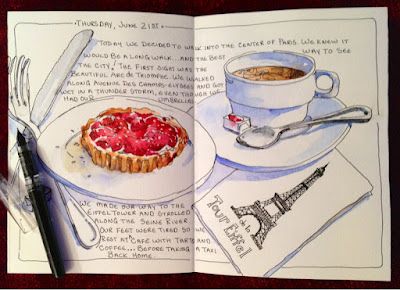 Thursday, June 21st
Today we decided to walk into the center of Paris. We knew it
would be a long walk... and the best way to see
the city! The first sight was the
beautiful Arc de Triomphe. We walked
along Avenue Des Champs-Elysées and got
wet in a thunder storm, even though we
had our umbrellas.
We made our way to the
Eiffel Tower and strolled
along the Seine River.
Our feet were tired so we
rest at Cafe with tarts and
coffee... before taking a taxi
back home.
Tour
de la
Eiffel